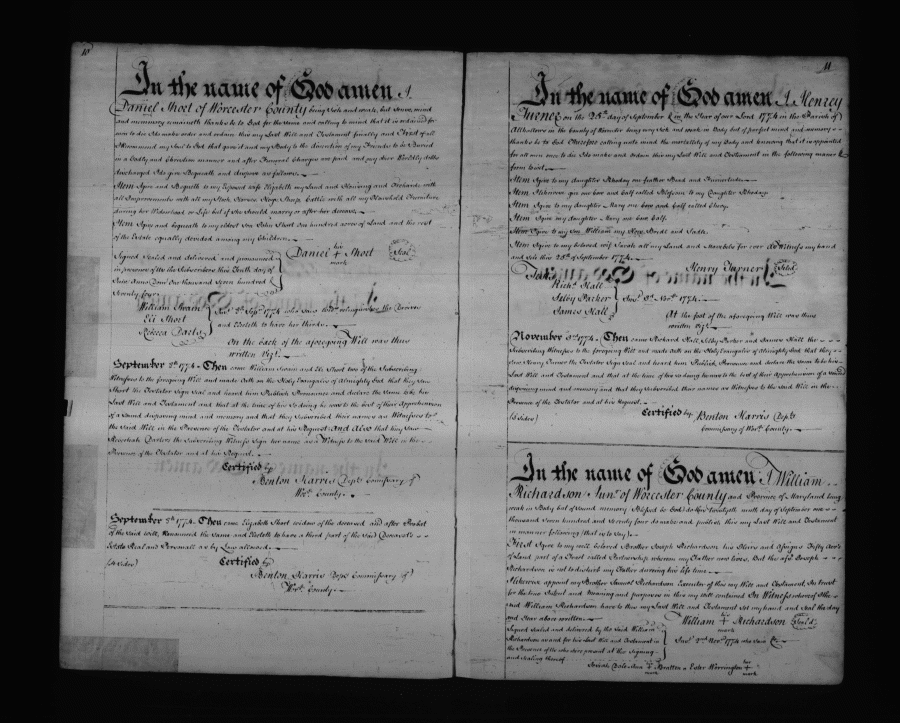 10
In the name of God amen I
Daniel Short of Worcester County being Sick and weak, but sound mind
and memory remaineth thanks be to God for the same and calling to mind that it is ordained for
men to die I do make and ordain this my Last Will and Testament first and of all
I Recommend my Soul to God that gave it and my Body to the discretion of my Friends to be Buried
in a Godly and Christian manner and after Funeral Charges are paid and my other Worldly debts
discharged I do give Bequeath and dispose as follows.
Item I give and Bequeath to my beloved wife Elizabeth my Land and Housing and Orchards with
all Improvements with all my Stock Horses Hogs Sheep Cattle with all my Household Furniture
during her Widowhood or Life but if she should marry or after her decease
Item I give and bequeath to my eldest Son John Short One hundred acres of Land and the rest
of the Estate equally devided among my Children
Signed Sealed and delivered and pronounced
in presence of Us the Subscribers this Tenth day of
Anno Dom One thousand Seven hundred
Seventy four
Daniel his + mark Short Seal
William Swain
Eli Short
Rebecca
Septr 1774 who
and Elizabeth to have her thirds
On the back of the aforegoing Will was thus
written Vizt.
September 5th 1774. Then came William Swain and Eli Short two of the Subscribing
Witnesses to the foregoing Will and made Oath on the Holy Evangels of Almighty God that they saw
Short the Testator Sign Seal and heard him Publish Pronounce and declare the same to be his
Last Will and Testament and that at the time of his so doing he was to the best of their Apprehension
of a sound disposing mind and memory and that they Subscribed their names as Witnesses to
the said Will in the Presence of the Testator and at his Request and also that they saw
the Subscribing Witness Sign her name as a Witness to the said Will in the
Presence of the Testator and at his Request.
Certified by
Benton Harris Depty Commissary of
Worr. County.
September 5th 1774. Then came Elizabeth Short widow of the deceased and after Probat
of the said Will, Renounced the same and Electeth to have a third part of the said Deceased's
Estate Real and Personall as by Law allowed.
(4 Sides) Certified by
Benton Harris Depty Commissary of
Worr. County.
11
In the name of God amen I Henrey
Turner on the 25th day of September in the Year of our Lord 1774 in the Parish of
Allhollows in the County of Worcester being very Sick and weak in Body but of perfect mind and memory
thanks be to God Therefore calling unto mind the mortality of my Body and knowing that it is appointed
for all men once to die I do make and Ordain this my Last Will and Testiment in the following manner &
form towit
Item I give to my daughter Rhoday one feather Bead and Furniture
Item Likewise give one Cow and Calf called to my Daughter Rhoday
Item I give to my daughter Mary one Cow and Calf called Cherry.
Item I give my daughter Mary one Cow Calf.
Item I give to my Son William my New Bridle and Sadle.
Item I give to my beloved wife Sarah all my Land and Moveable for ever As Witness my hand
and Seale this 25th of September 1774.
Henry Turner Seled
Test
Richd. Hall
Selby Parker
James Hall
Novr. 1774.
At the foot of the aforegoing Will was thus
written Vizt.
November 1774. Then came Richard Hall, Selby Parker and James Hall the
Subscribing Witnesses to the foregoing Will and made Oath on the Holy Evangels of Almighty God that they
saw Henry Turner the Testator Sign seal and heard him Publish Pronounce and declare the same to be his
Last Will and Testament and that at the time of his so doing he was to the best of their Apprehension of a sound
disposing mind and memory and that they Subscribed their names as Witnesses to the said Will in the
Presence of the Testator and at his Request.
(3 Sides) Certified by Benton Harris Depty
Commissary of Worr. County.
In the name of God amen I William
Richardson Junr. of Worcester County and Province of Maryland being
weak in Body but of sound memory Blessed be God do this twentyeth day of September one
thousand Seven hundred and Seventy four do make and publish this my Last Will and Testament
in manner following (that is to Say)
First I give to my well beloved Brother Joseph Richardson his Heirs and Assigns Fifty Acres
of Land part of a Tract called Partnership whereon my Father now lives. But the afsd. Joseph
Richardson is not to disturb my Father during his life time
I likewise appoint my Brother Samuel Richardson Executor of this my Will and Testament In trust
for the true Intent and Meaning and purposes in this my will contained In Witness whereof I the
said William Richardson have to this my Last Will and Testament Set my hand and Seal the day
and Year above written.
William his + mark Richardson Seal'd
Signed Sealed and delivered by the said William
Richardson as and for his Last Will and Testament in
the Presence of Us who were present at the Signing
and Sealing thereof
Novr. 1774
Bratten Ester Worrington her + mark